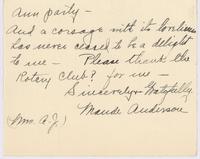 Ann party –
And a corsage with its loveliness
has never ceased to be a delight
to me – Please thank the
Rotary Club? for me –
Sincerely + Gratefully,
Maude Anderson
(Mrs. A.J.)